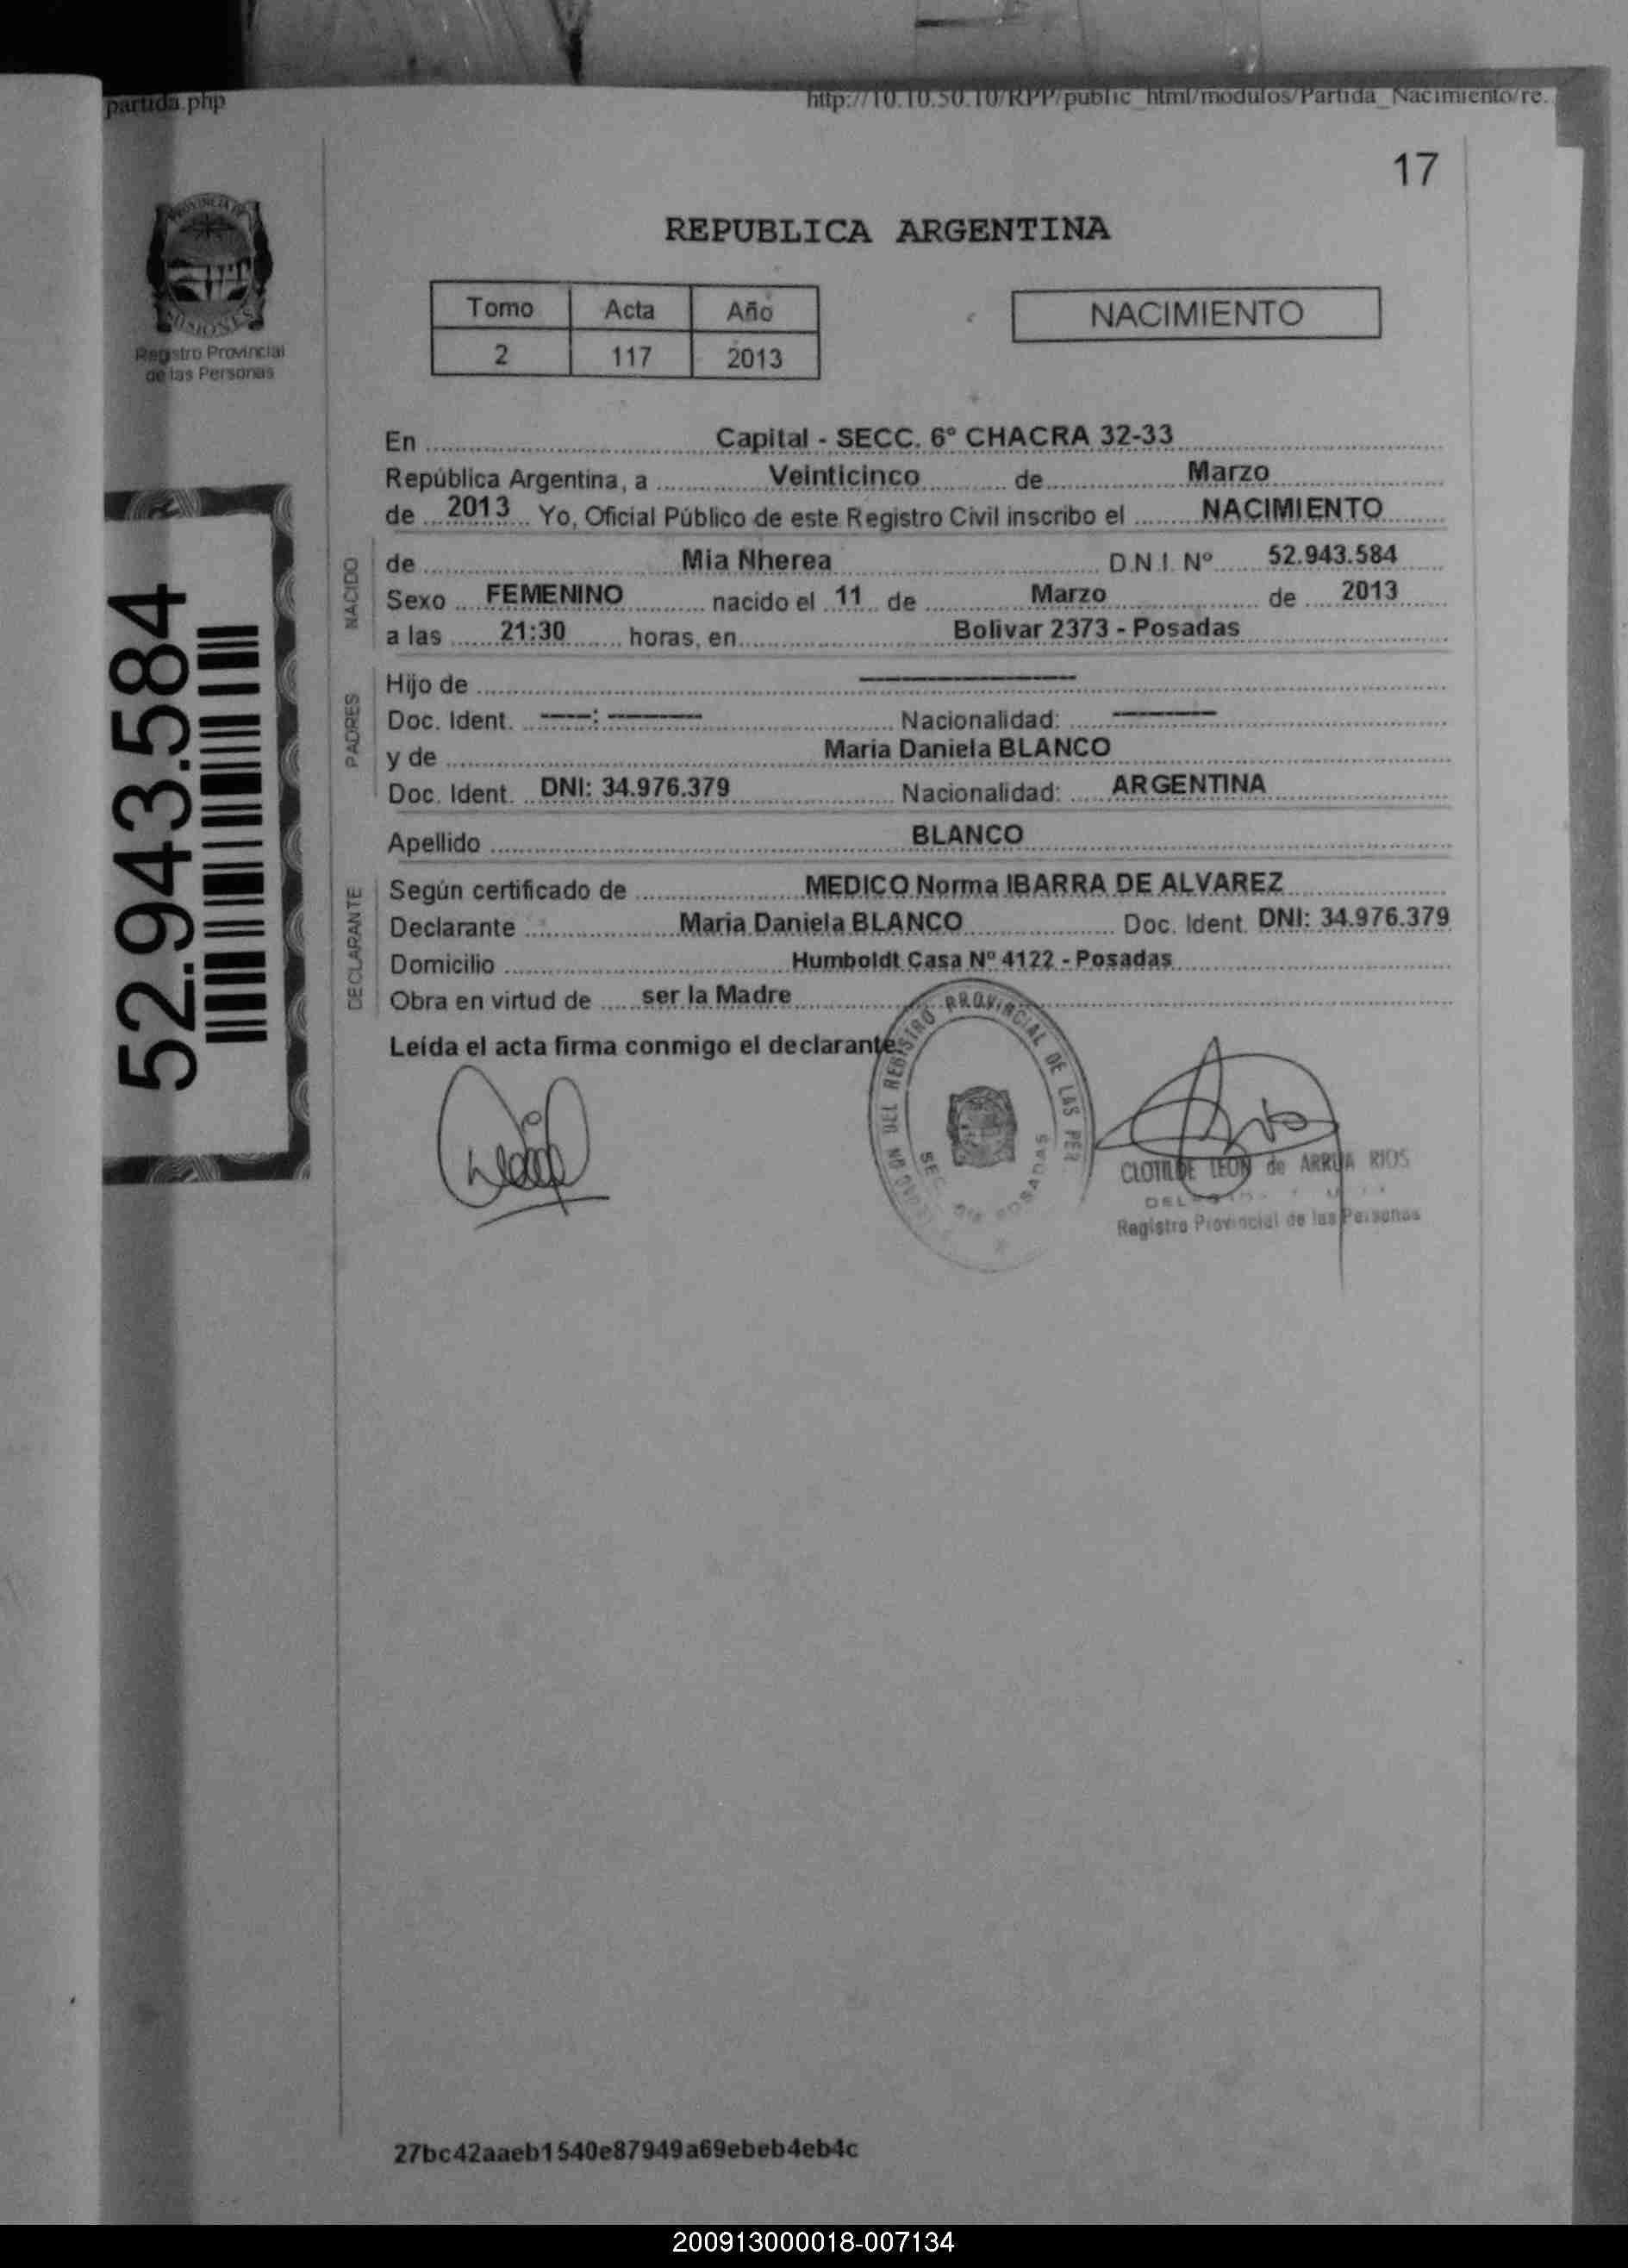 partida.php
http://10.10.50.10/RPP/public_html/modulos/Partida_Nacimiento/re.
17
PROVINCIA DE
MISIONES
Registro Provincial
de las Personas
REPUBLICA ARGENTINA
Tomo Acta Año
2 117 2013
NACIMIENTO
52.943.584
En Capital - SECC. 6° CHACRA 32-33
República Argentina, a Veinticinco de Marzo
de 2013 Yo, Oficial Público de este Registro Civil inscribo el NACIMIENTO
NACIDO
de Mia Nherea D.N.I. Nº 52.943.584
Sexo FEMENINO nacido el 11 de Marzo de 2013
a las 21:30 horas, en Bolivar 2373 - Posadas
PADRES
Hijo de ----------
Doc. Ident. ----: -------- Nacionalidad: --------
y de Maria Daniela BLANCO
Doc. Ident. DNI: 34.976.379 Nacionalidad: ARGENTINA
Apellido BLANCO
DECLARANTE
Según certificado de MEDICO Norma IBARRA DE ALVAREZ
Declarante Maria Daniela BLANCO Doc. Ident. DNI: 34.976.379
Domicilio Humboldt Casa Nº 4122 - Posadas
Obra en virtud de ser la Madre
Leída el acta firma conmigo el declarante.
DEL REGISTRO PROVINCIAL DE LAS PER
POSADAS
CLOTILDE LEON de ARRUA RIOS
Registro Provincial de las Personas
27bc42aaeb1540e87949a69ebeb4eb4c
200913000018-007134